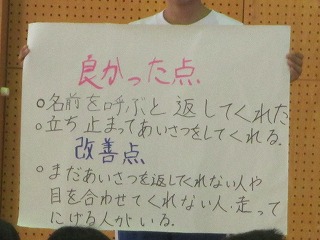 良かった点
○名前を呼ぶと返してくれた
○立ち止まってあいさつをしてくれる.
改善点
○まだあいさつを返してくれない人や
目を合わせてくれない人、走って
にげる人がいる.